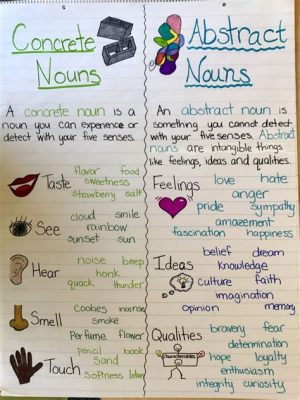 Concrete
Nouns
A concrete noun is a
noun you can experience or
detect with your five senses.
Taste
flavor food
sweetness
strawberry salt
See
cloud smile
rainbow
sunset sun
Hear
noise beep
honk
quack thunder
Smell
Cookies incense
smoke
Perfume flower
Touch
pencil book
sand
Softness lotion
Abstract
Nouns
An abstract noun is
something you cannot detect
with your five senses. Abstract
nouns are intangible things
like feelings, ideas and qualities.
Feelings
love hate
anger
pride sympathy
amazement
fascination happiness
Ideas
belief dream
knowledge
culture faith
imagination
Opinion memory
Qualities
Characteristics
bravery fear
determination
hope loyalty
enthusiasm
integrity curiosity